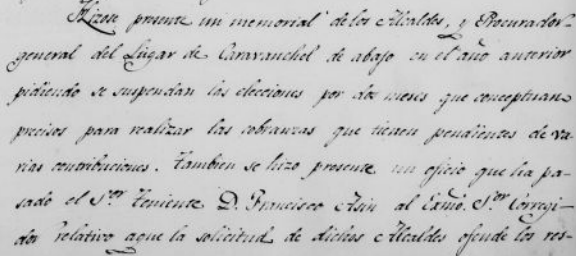 Hizose presente un memorial de los Alcaldes, y Procurador
general del Lugar de Caravanchel de abajo en el año anterior
pidiendo se suspendan las elecciones por dos meses que conceptuan
precisos para realizar las cobranzas que tienen pendientes de va-
rias contribuciones. Tambien se hizo presente un oficio que ha pa-
sado el S.or Teniente D. Francisco Asin al Exmô. S.or Corregi-
dor relativo aque la solicitud de dichos Alcaldes ofende los res-